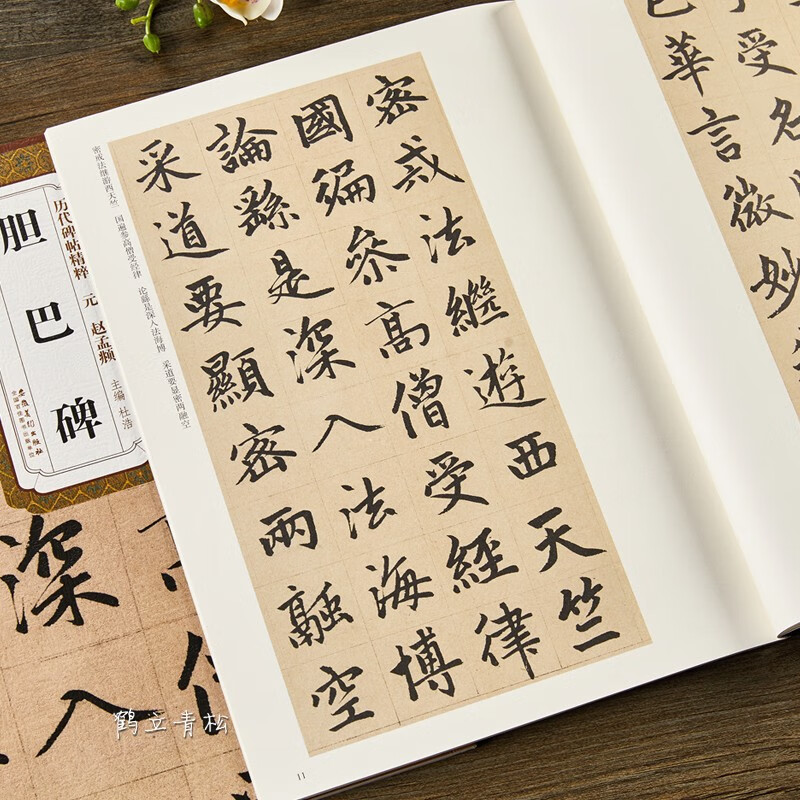 受名
華言微妙
密戒法繼遊西天竺
國徧參高僧受經律
論繇是深入法海博
采道要顯密兩融空
密戒法继游西天竺 国遍参高僧受经律 论繇是深入法海博 采道要显密两融空
11
历代碑帖精粹 元 赵孟頫 主编 杜浩
胆巴碑
安徽美术出版社
全国百佳图书出版单位
深入
鹤立青松